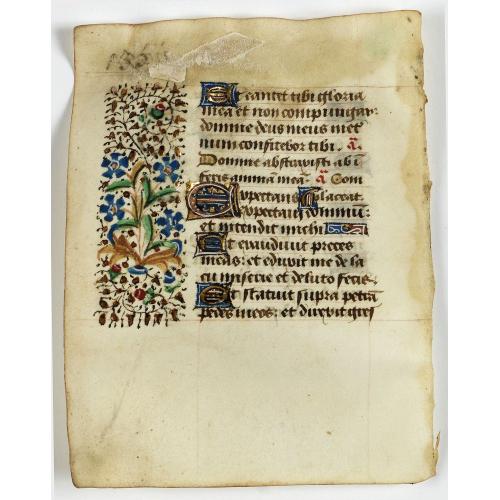 Et cantet tibi gloria
mea et non compungar
domine deus meus in et
num confitebor tibi. a
Domine abstraxisti ab i
feris animā meā. a Com
Expectans placeat
expectavi dominū:
et intendit michi
Et exaudivit preces
meas: et eduxit me de la
cu miserie et de luto fecis
Et statuit supra petrā
pedes meos: et direxit gres